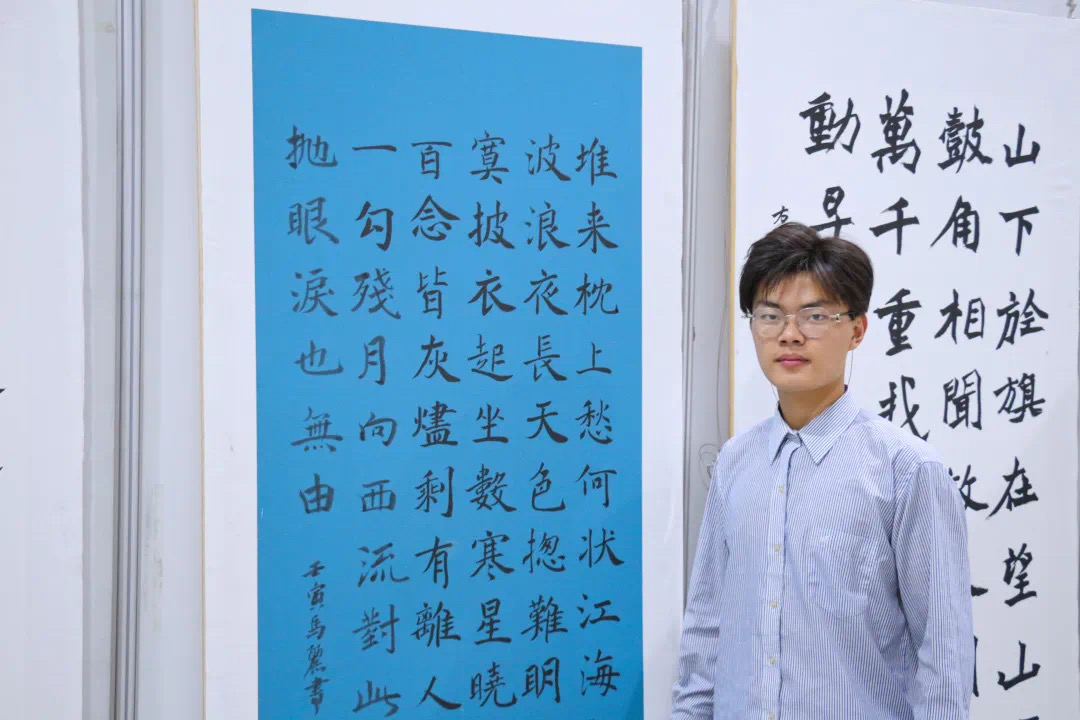 山下於旗在望山
鼓角相聞
萬千重我
動早
堆来枕上愁何状江海
波浪夜長天色揔難明
寞披衣起坐數寒星曉
百念皆灰燼剩有離人
一勾殘月向西流對此
抛眼淚也無由
壬寅馬麗書